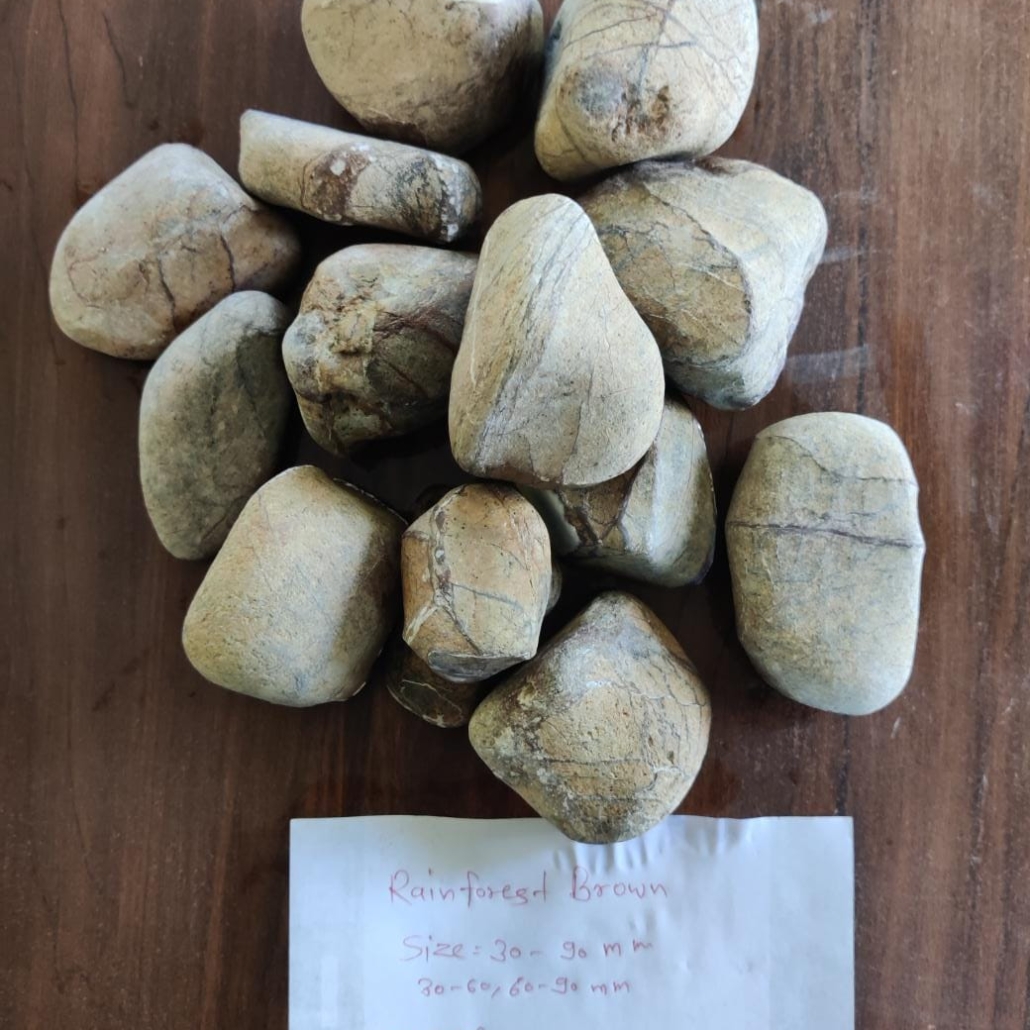 Rainforest Brown
Size = 30 - 90 mm
30-60, 60-90 mm